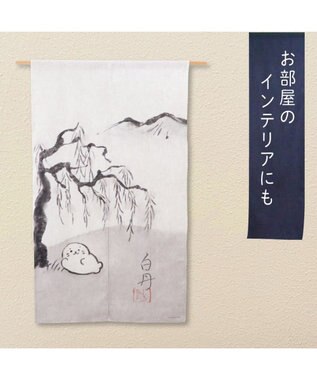 お部屋の
インテリアにも
白丹